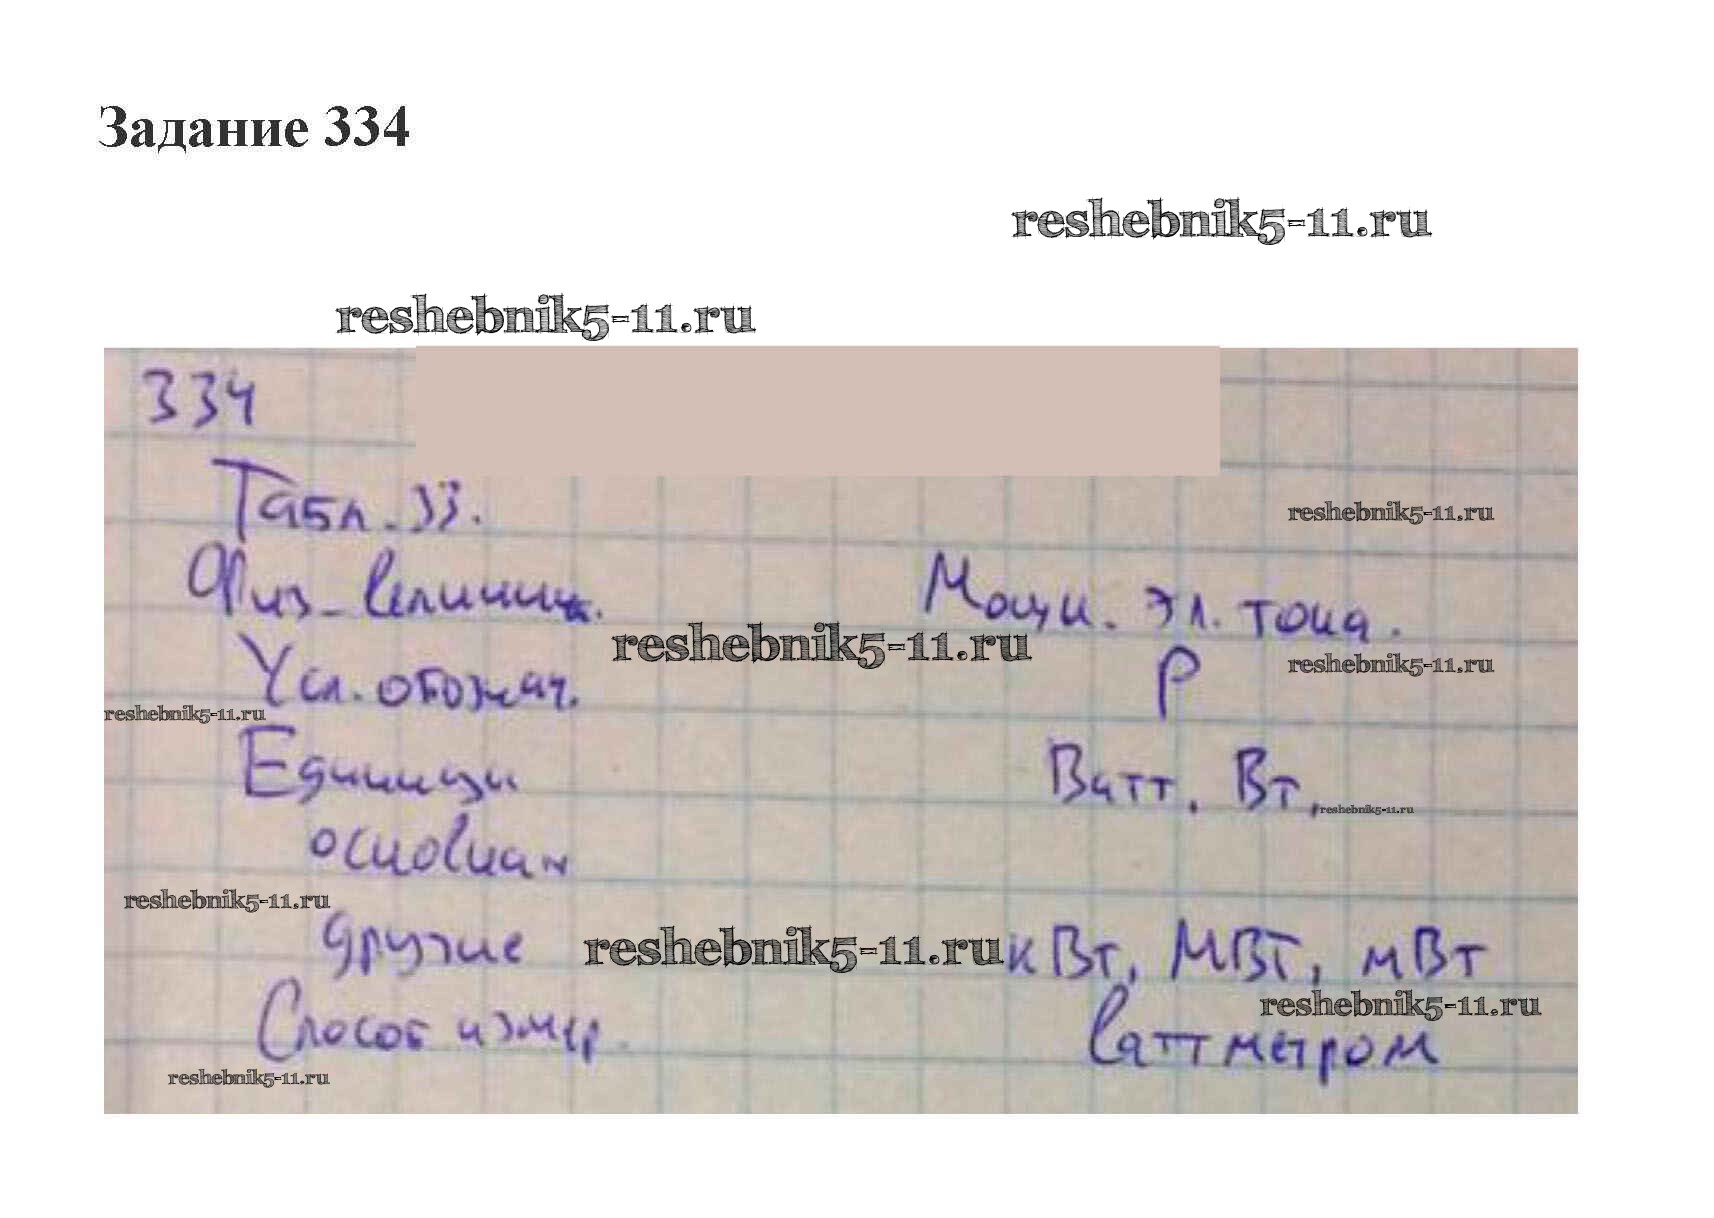 Задание 334
reshebnik5-11.ru
reshebnik5-11.ru
334
Табл. 33.
reshebnik5-11.ru
Физ. величина. Мощн. эл. тока.
reshebnik5-11.ru
Усл. обознач. P reshebnik5-11.ru
reshebnik5-11.ru
Единицы Ватт. Вт, reshebnik5-11.ru
основная
reshebnik5-11.ru
другие reshebnik5-11.ru кВт, МВт, мВт
reshebnik5-11.ru
Способ измер. Ваттметром
reshebnik5-11.ru